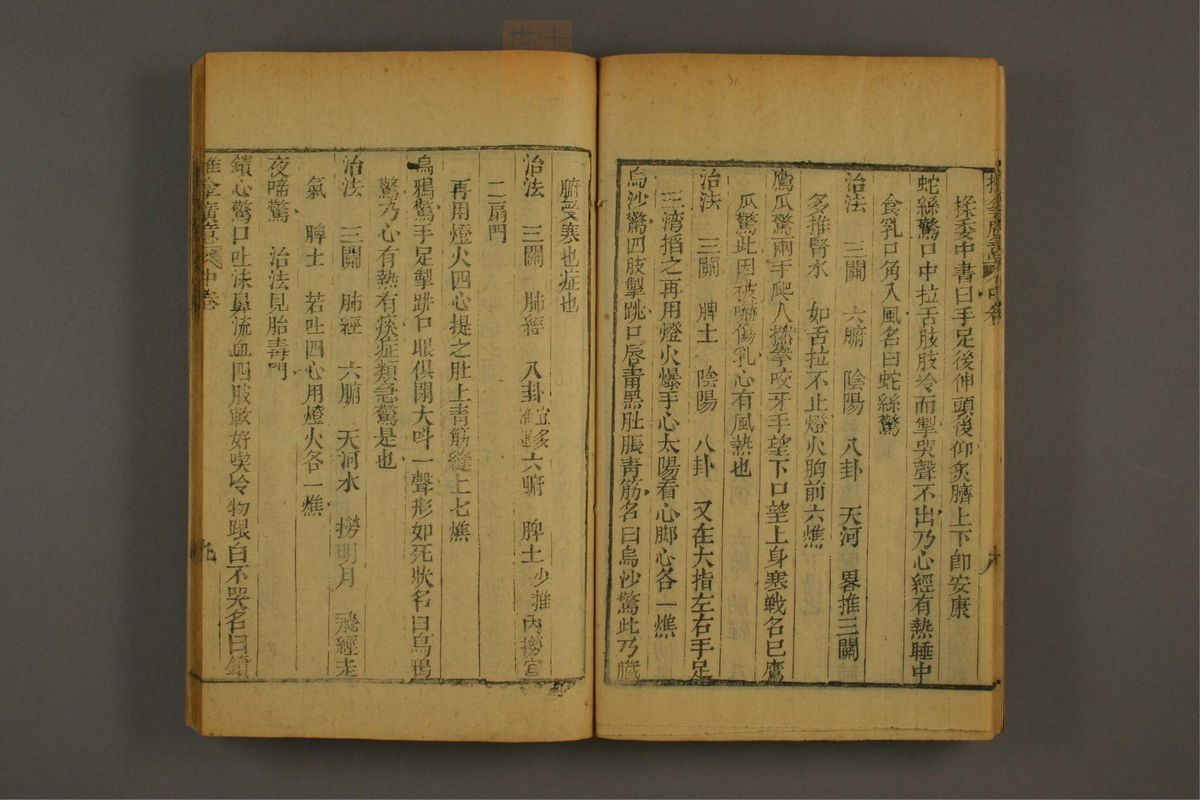 揉委中書曰手足後伸頭後仰炙臍上下卽安康
蛇絲驚口中拉舌肢肢冷而掣哭聲不出乃心經有熱睡中
食乳口角入風名曰蛇絲驚
治法 三關 六腑 陰陽 八卦 天河 畧推三關
多推腎水 如舌拉不止燈火胸前六燋
鷹爪驚兩手爬人捻拳咬牙手望下口望上身寒戰名曰鷹
爪驚此因被嚇傷乳心有風熱也
治法 三關 脾土 陰陽 八卦 又在大指左右手足
三湾掐之再用燈火爆手心太陽看心脚心各一燋
烏沙驚四肢掣跳口唇靑黑肚脹靑筋名曰烏沙驚此乃臟
九
腑受寒也症也
治法 三關 肺經 八卦 宜多 六腑 脾土 少推 內撈宜
二扇門
再用燈火四心提之肚上靑筋縫上七燋
烏鴉驚手足掣跳口眼俱閉大呌一聲形如死狀名曰烏鴉
驚乃心有熱有痰症類急驚是也
治法 三關 肺經 六腑 天河水 撈明月 飛經走
氣 脾土 若吐四心用燈火各一燋
夜啼驚 治法見胎毒門
鎖心驚口吐沫鼻流血四肢軟好喫冷物眼白不哭名曰鎖
推拿廣意 中卷